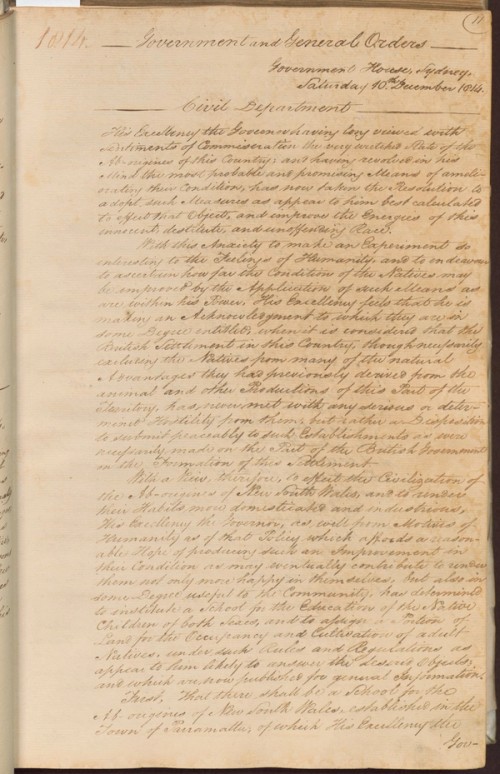 11
1814. Government and General Orders
Government House, Sydney,
Saturday 10th December 1814.
Civil Department
His Excellency the Governor having long viewed with
Sentiments of Commiseration the very wretched State of the
Ab-origines of this Country; and having revolved in his
Mind the most probable and promising Means of amelio-
rating their Condition, has now taken the Resolution to
adopt such Measures as appear to him best calculated
to effect that Object, and improve the Energies of this
innocent, destitute, and unoffending Race.
With this Anxiety to make an Experiment so
interesting to the Feelings of Humanity, and to endeavour
to ascertain how far the Condition of the Natives may
be improved by the Application of such Means as
are within his Power, His Excellency feels that he is
making an Acknowledgment to which they are in
some Degree entitled, when it is considered that the
British Settlement in this Country, though necessarily
excluding the Natives from many of the natural
Advantages they had previously derived from the
animal and other Productions of this Part of the
Territory, has never met with any serious or deter-
mined Hostility from them, but rather a Disposition
to submit peaceably to such Establishments as were
necessarily made on the Part of the British Government
in the Formation of this Settlement
With a View, therefore, to effect the Civilization of
the Ab-origines of New South Wales, and to render
their Habits more domesticated and industrious,
His Excellency the Governor, as well from Motives of
Humanity as of that Policy which affords a reason-
able Hope of producing such an Improvement in
their Condition as may eventually contribute to render
them not only more happy in themselves, but also in
some Degree useful to the Community, has determined
to institute a School for the Education of the Native
Children of both Sexes, and to assign a Portion of
Land for the Occupancy and Cultivation of adult
Natives, under such Rules and Regulations as
appear to him likely to answer the desired Objects;
and which are now published for general Information.
First, That there shall be a School for the
Ab-origines of New South Wales, established in the
Town of Parramatta; of which His Excellency the
Gov-